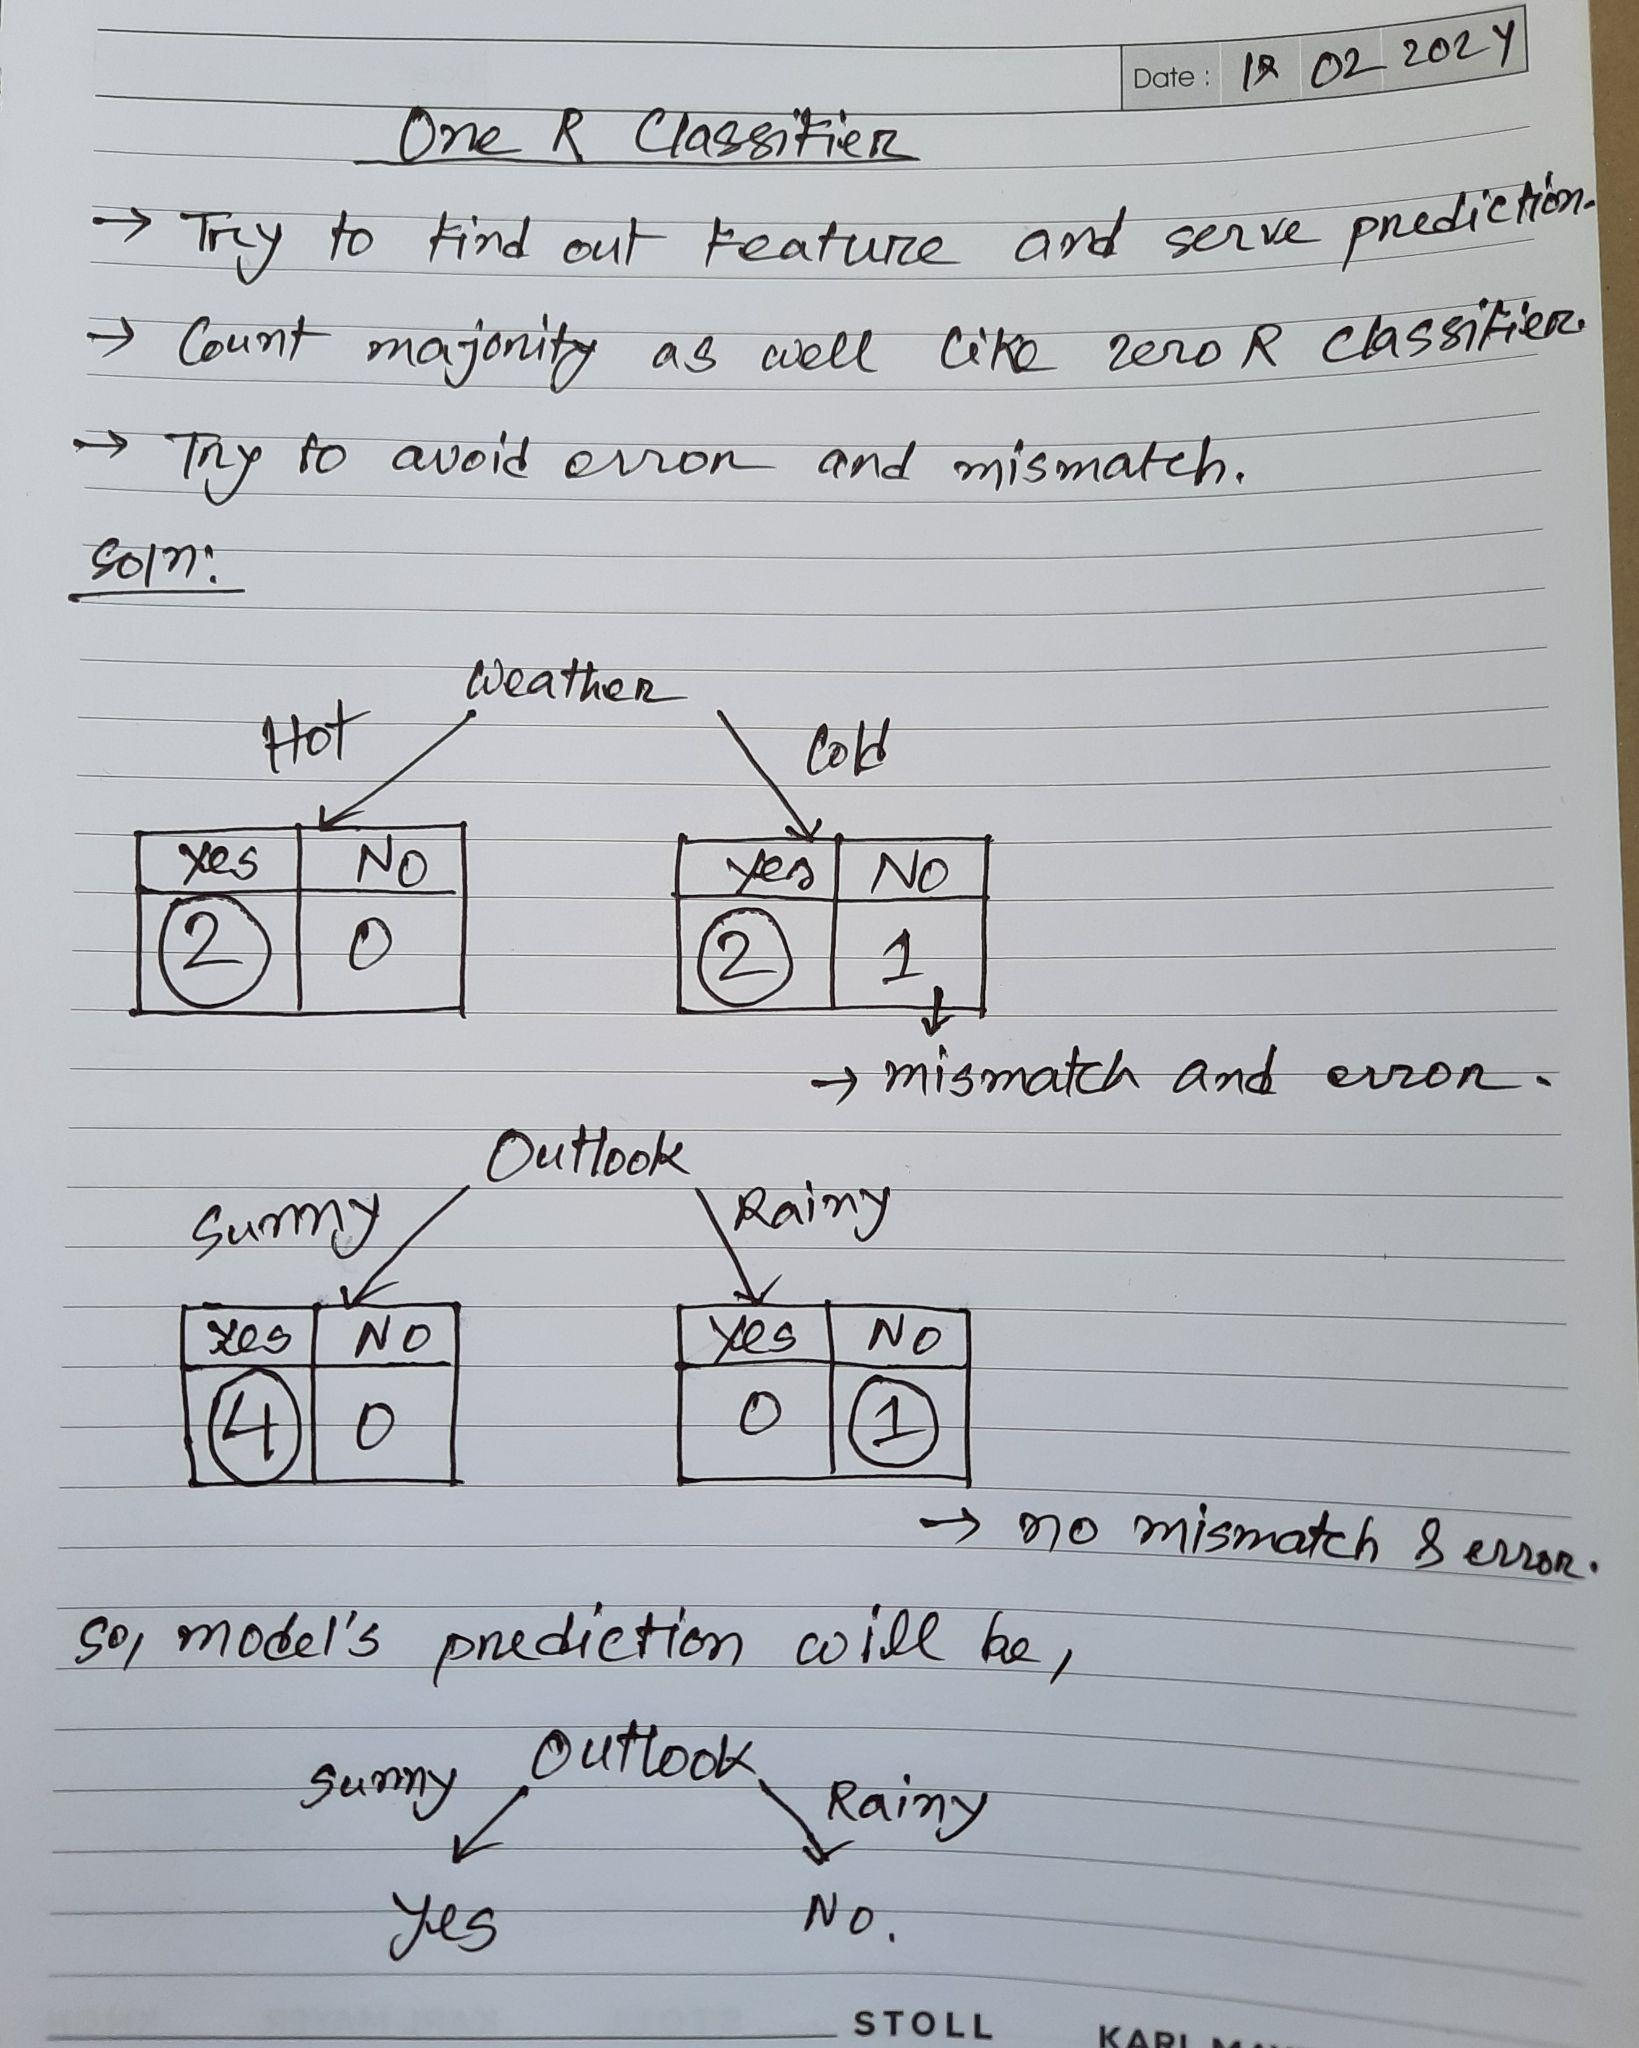 Date : 02 2024
One R Classifier
→ Try to find out feature and serve prediction.
→ Count majority as well like zero R classifier.
→ Try to avoid error and mismatch.
Soln:
Weather
Hot Cold
Yes NO Yes NO
2 0 2 1
→ mismatch and error.
Outlook
Sunny Rainy
Yes NO Yes NO
4 0 0 1
→ no mismatch & error.
So, model's prediction will be,
Outlook
Sunny Rainy
Yes No.
STOLL KARL